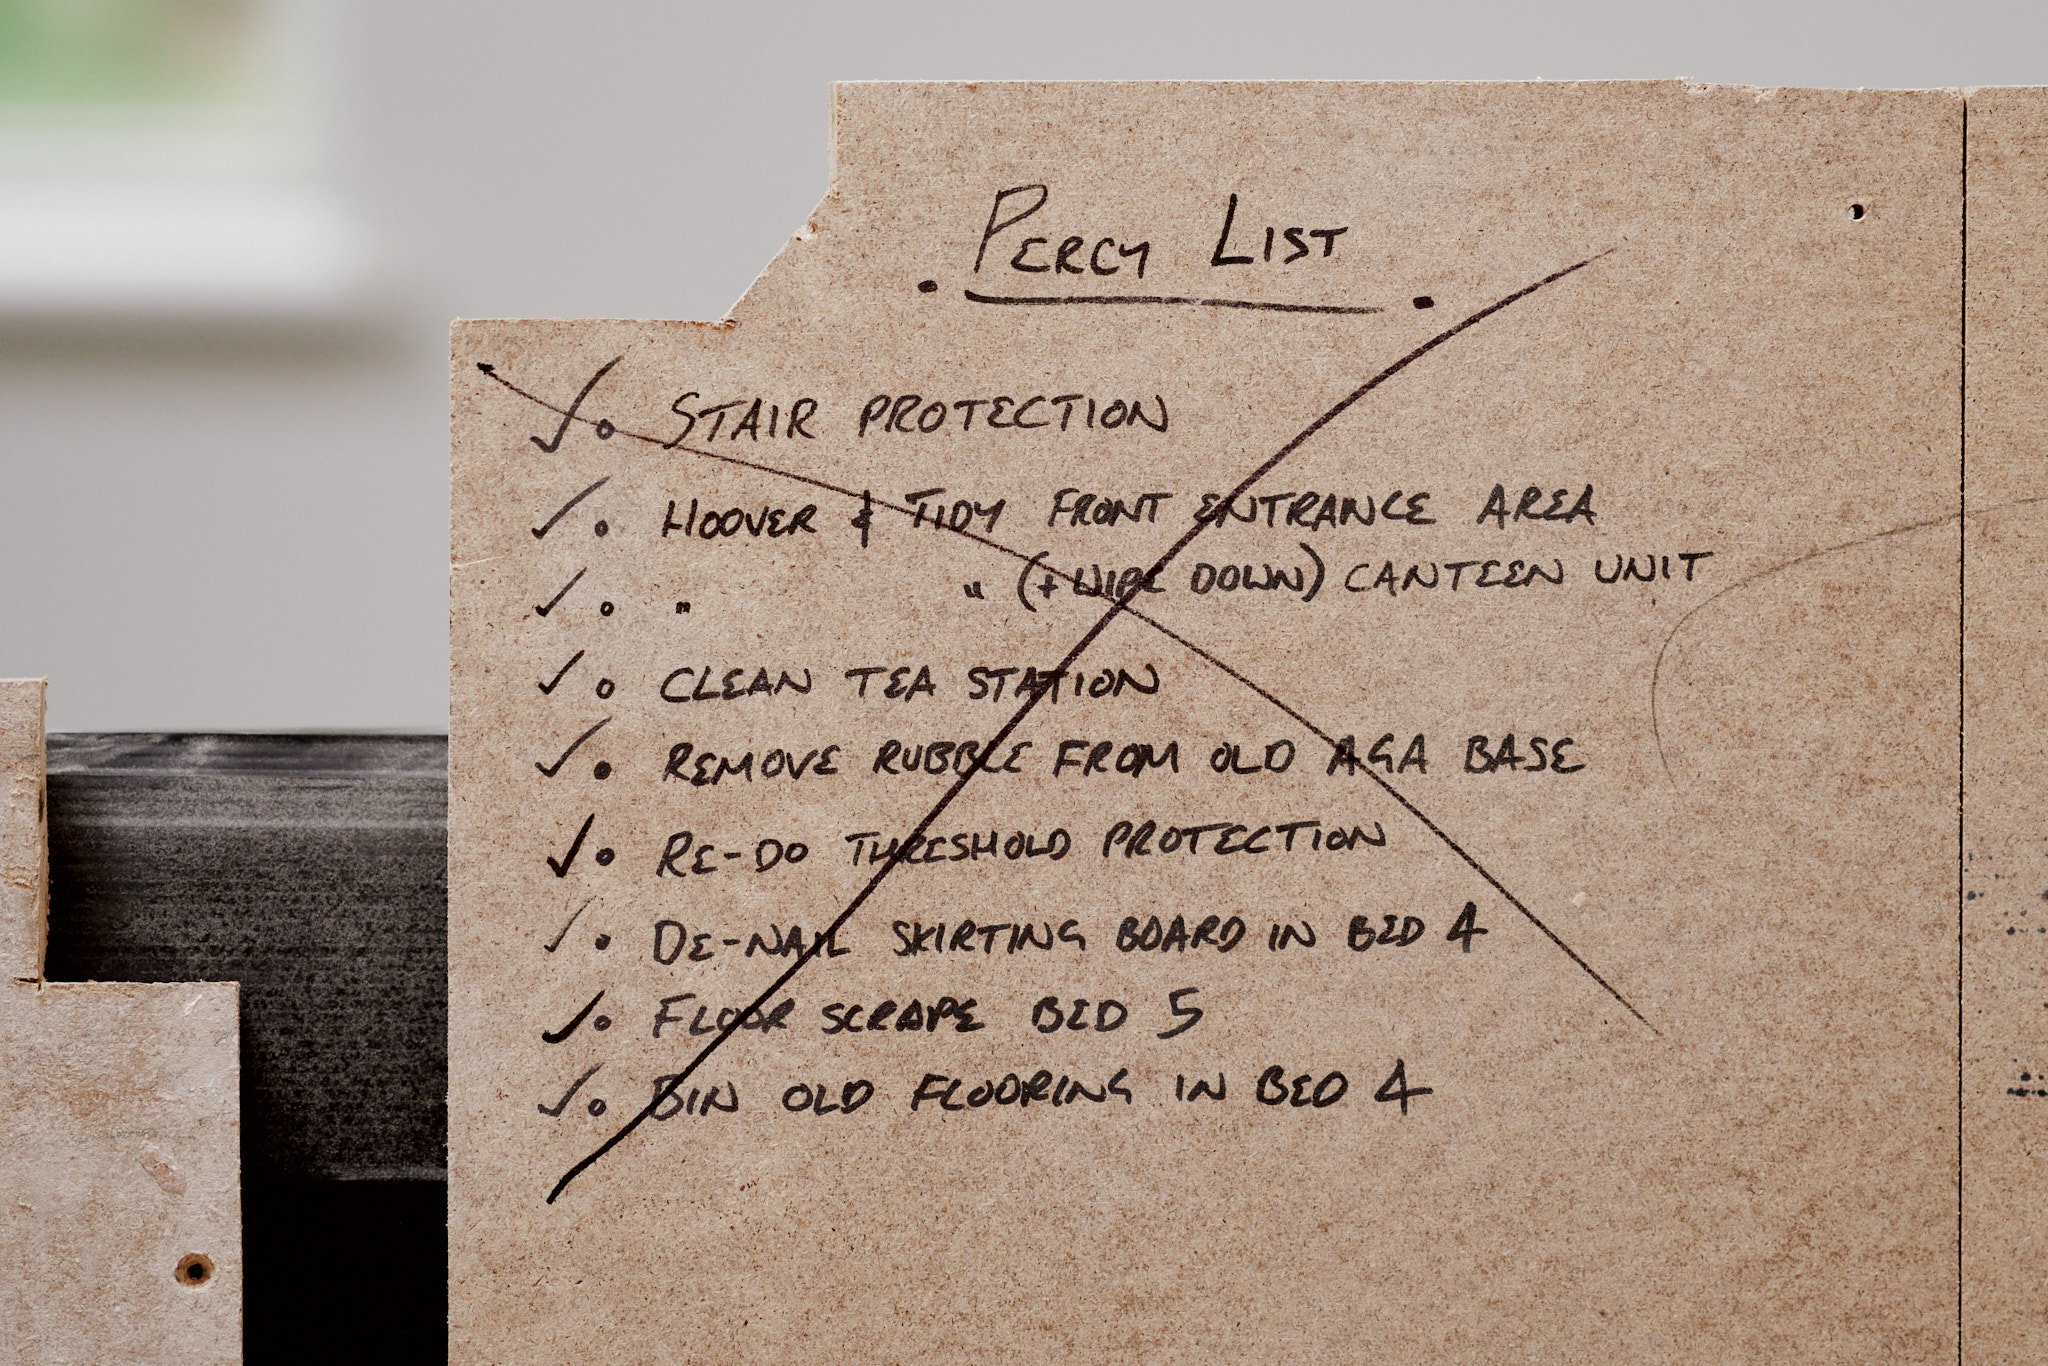 PERCY LIST
✓ ∘ STAIR PROTECTION
✓ ∘ HOOVER & TIDY FRONT ENTRANCE AREA
✓ ∘ " " (+ WIPE DOWN) CANTEEN UNIT
✓ ∘ CLEAN TEA STATION
✓ ∘ REMOVE RUBBLE FROM OLD AGA BASE
✓ ∘ RE-DO THRESHOLD PROTECTION
✓ ∘ DE-NAIL SKIRTING BOARD IN BED 4
✓ ∘ FLOOR SCRAPE BED 5
✓ ∘ BIN OLD FLOORING IN BED 4